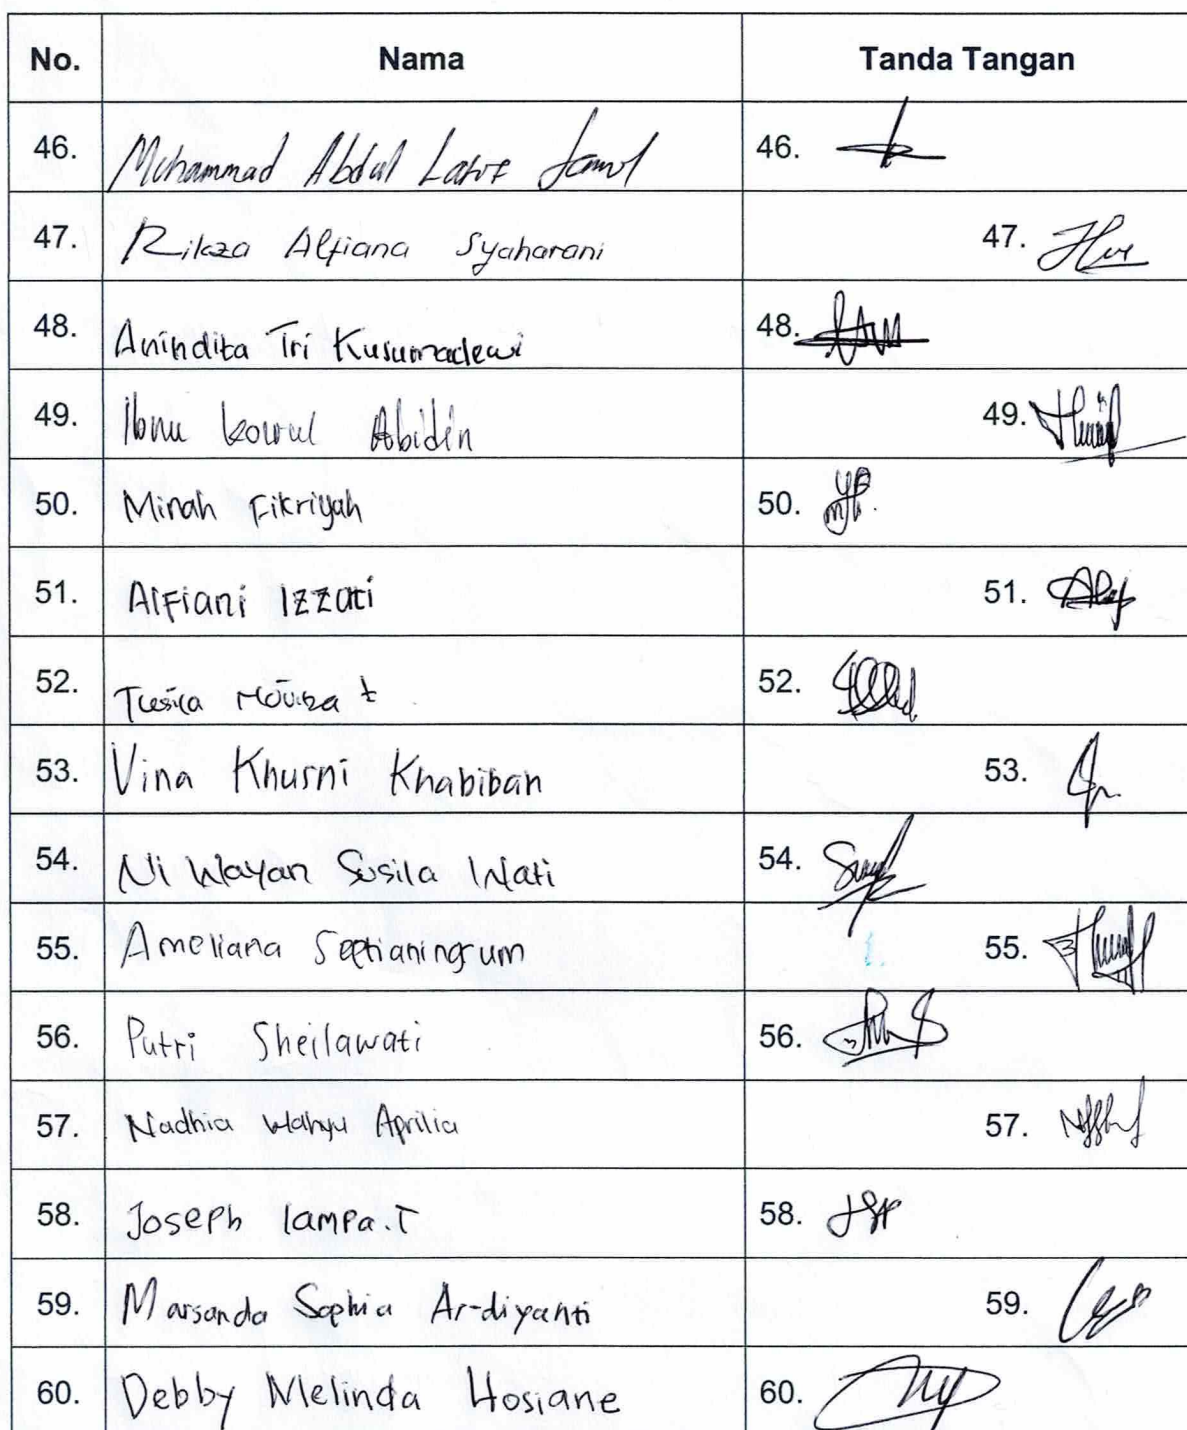 No. Nama Tanda Tangan
46. Muhammad Abdul 46.
47. Rikza Alfiana Syaharani 47.
48. Anindita Tri Kusumadewi 48.
49. Ibnu Abidin 49.
50. Minah Fikriyah 50.
51. Alfiani Izzati 51.
52. 52.
53. Vina Khusni Khabibah 53.
54. Ni Wayan Susila Wati 54.
55. Ameliana Septianingrum 55.
56. Putri Sheilawati 56.
57. Nadhia Wahyu Aprilia 57.
58. Joseph lampa.T 58.
59. Marsanda Sophia Ar-diyanti 59.
60. Debby Melinda Hosiane 60.